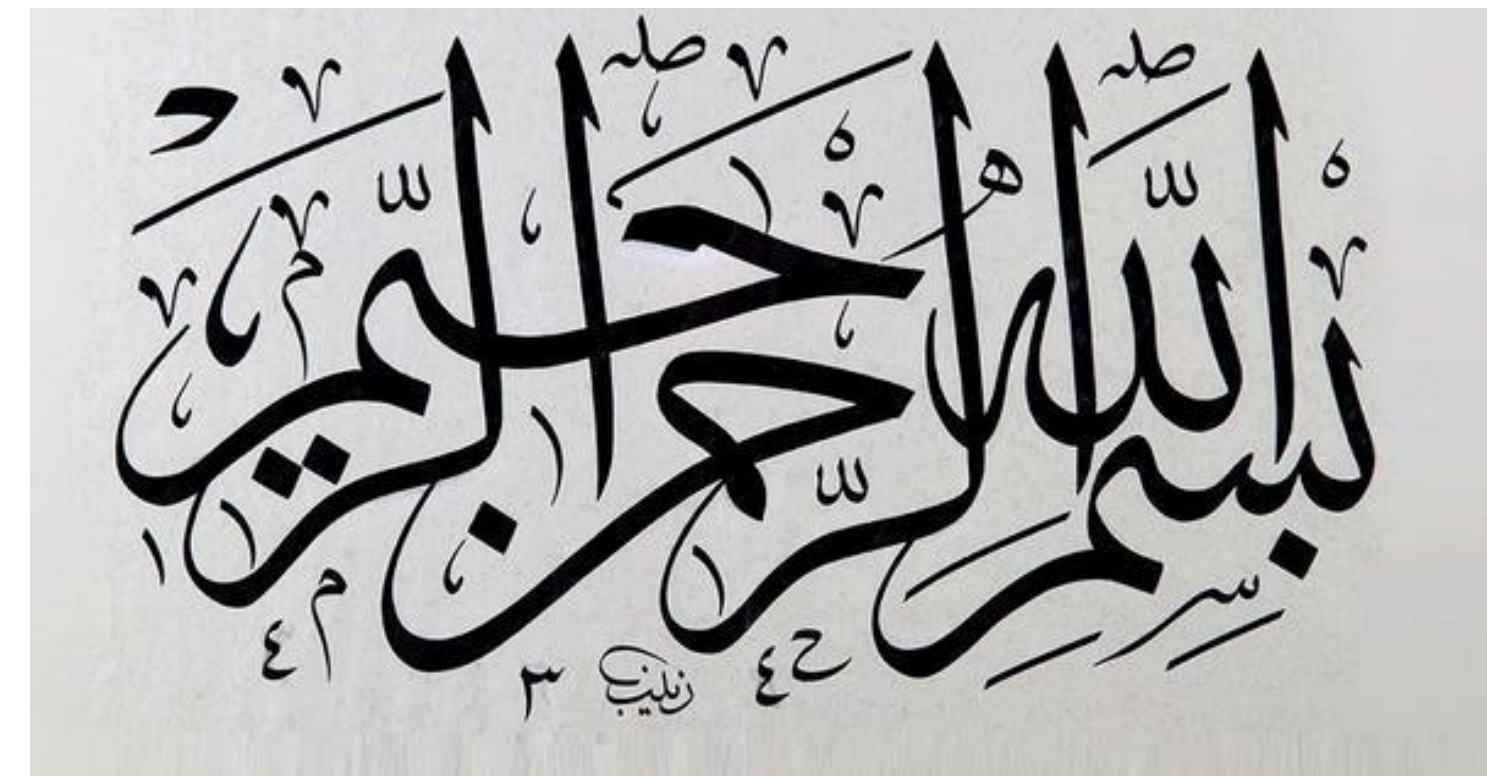 بِسْمِ اللّٰهِ الرَّحْمٰنِ الرَّحِيمِ
١٤٤٣
زينب